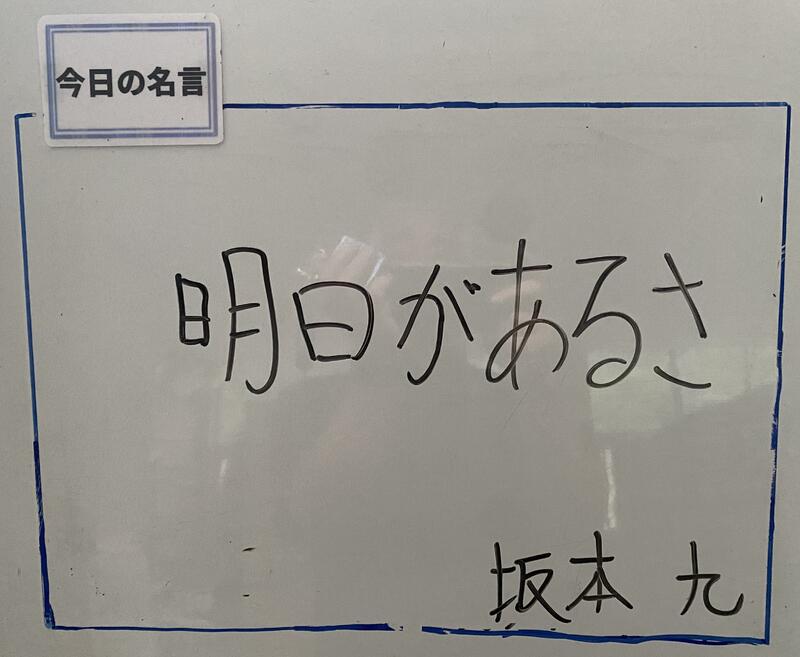 今日の名言
明日があるさ
坂本 九